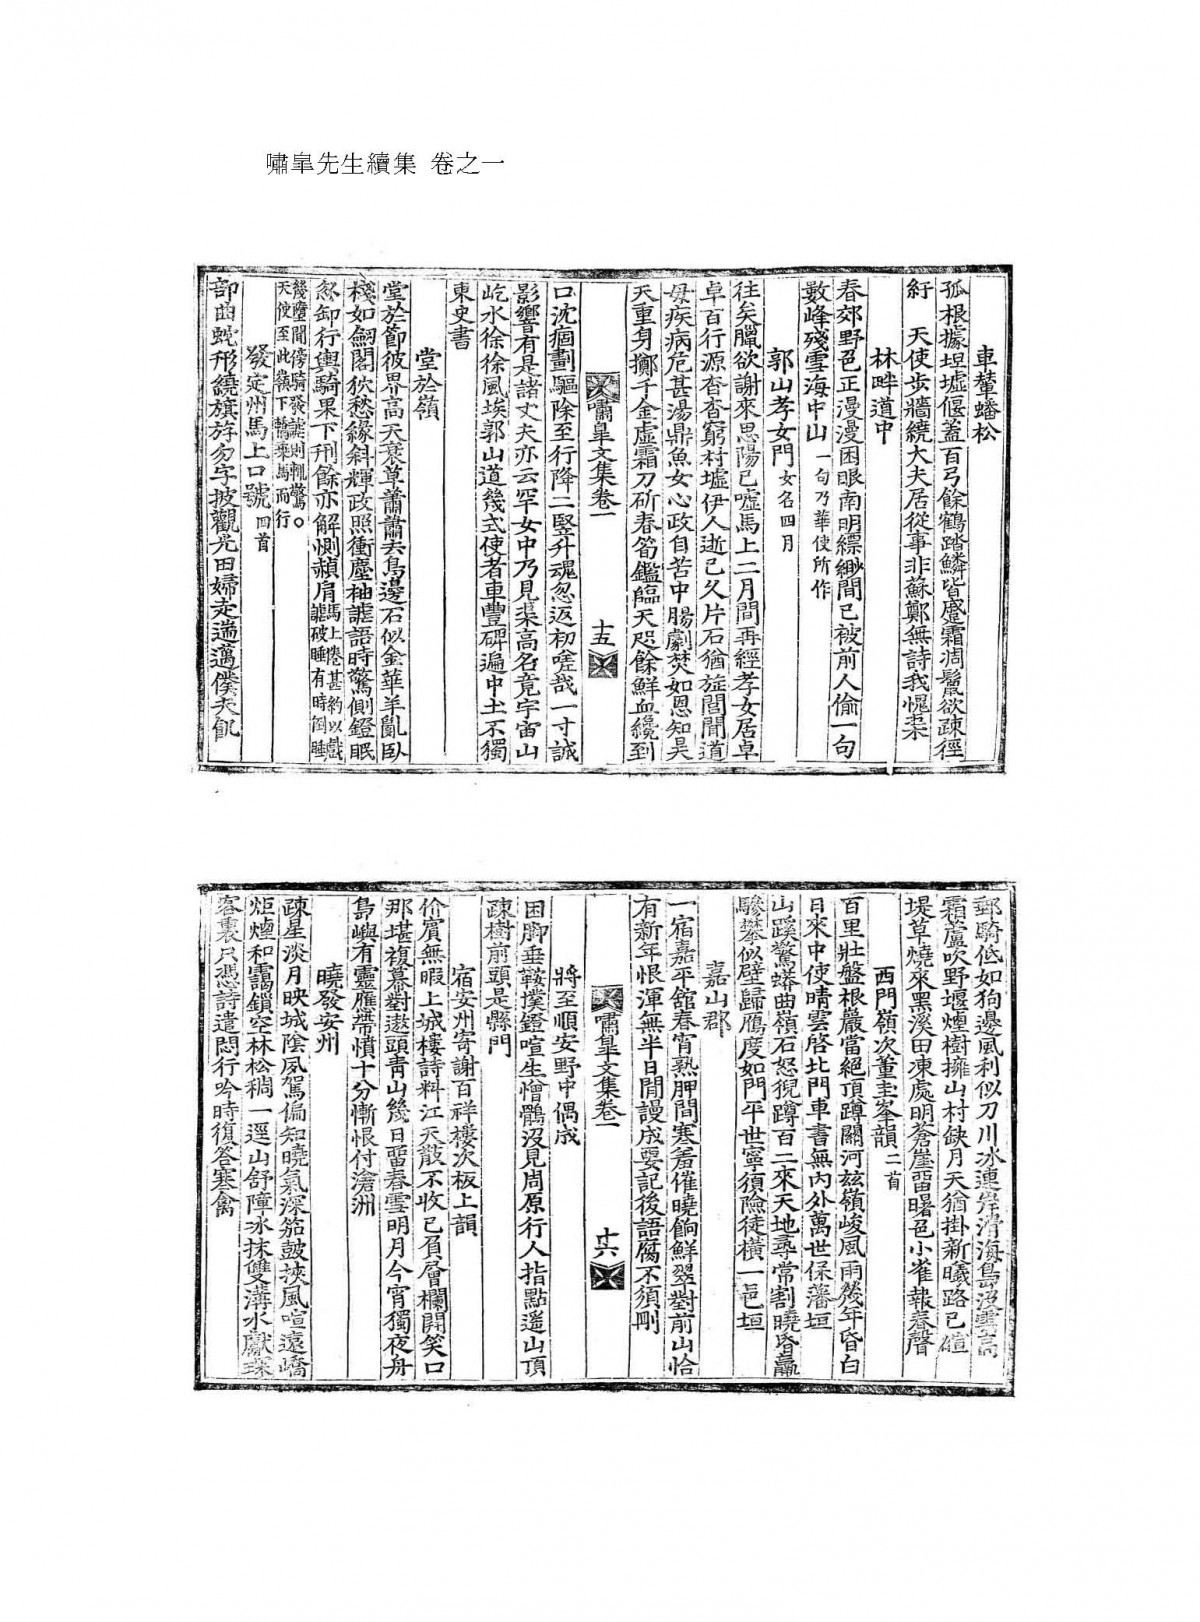 嘯皐先生續集 卷之一
車輦蟠松
孤根據坦墟偃蓋百弓餘鶴踏鱗皆蹙霜凋鬣欲疎徑
紆 天使步墻繞大夫居從事非蘇鄭無詩我愧渠
林畔道中
春郊野色正漫漫困眼南明縹緲間已被前人偷一句
數峰殘雪海中山 一句乃華使所作
郭山孝女門 女名四月
往矣臘欲謝來思陽已噓馬上二月間再經孝女居卓
卓百行源杳杳窮村墟伊人逝已久片石猶旌閭聞道
母疾病危甚湯鼎魚女心政自苦中腸劇焚如恩知昊
天重身擲千金虛霜刀斫春筍鑑臨天咫餘鮮血纔到
嘯皐文集卷一
十五
口沈痼劃驅除至行降二竪升魂忽返初嗟哉一寸誠
影響有是諸丈夫亦云罕女中乃見渠高名竟宇宙山
屹水徐徐風埃郭山道幾式使者車豐碑遍中土不獨
東史書
堂於嶺
堂於節彼界高天衰草蕭蕭去鳥邊石似金華羊亂臥
棧如劒閣狖愁緣斜輝政照衝塵袖謔語時驚側鐙眠
忽卸行輿騎果下刑餘亦解惻赬肩 馬上倦甚約以戲謔破睡有時倒睡
幾墮聞傍騎發謔則輒驚○天使至此嶺下轎乘馬而行
發定州馬上口號 四首
部曲蛇形繞旗斿勿字披觀光田婦走遄邁僕夫飢
郵騎低如狗邊風利似刀川冰連岸滑海島沒雲高
霜蘆吹野堰煙樹擁山村缺月天猶掛新曦路已暄
堤草燒來黑溪田凍處明蒼崖留曙色小雀報春聲
西門嶺次董圭峯韻 二首
百里壯盤根嚴當絕頂蹲關河玆嶺峻風雨幾年昏白
日來中使晴雲啓北門車書無內外萬世保藩垣
山蹊驚蟒曲嶺石怒猊蹲百二來天地尋常割曉昏羸
驂攀似壁歸鴈度如門平世寧須險徒橫一邑垣
嘉山郡
一宿嘉平舘春宵熟胛間塞羞催曉餉鮮翠對前山恰
有新年恨渾無半日閒謾成要記後語腐不須刪
嘯皐文集卷一
十六
將至順安野中偶成
困脚垂鞍撲鐙喧生憎鶻沒見周原行人指點遙山頂
疎樹前頭是縣門
宿安州寄謝百祥樓次板上韻
价賓無暇上城樓詩料江天散不收已負層欄開笑口
那堪複幕對遨頭靑山幾日留春雪明月今宵獨夜舟
島嶼有靈應帶憤十分慚恨付滄洲
曉發安州
疎星淡月映城陰夙駕偏知曉氣深笳鼓挾風喧遠嶠
炬煙和靄鎖空林松稠一逕山舒障氷抹雙溝水獻琛
客裏只憑詩遣悶行吟時復答寒禽